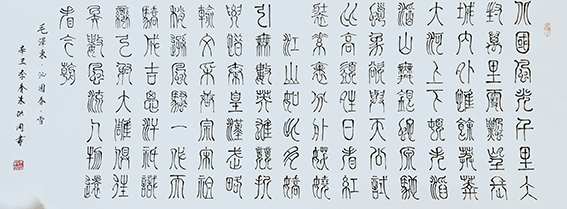 北國風光千里冰
封萬里雪飄望長
城内外惟餘莽莽
大河上下頓失滔
滔山舞銀蛇原馳
蠟象欲與天公試
比高須晴日看紅
裝素裹分外妖嬈
江山如此多嬌
引無數英雄競折
腰惜秦皇漢武略
輸文采唐宗宋祖
稍遜風騷一代天
驕成吉思汗只識
彎弓射大雕俱往
矣數風流人物還
看今朝
毛澤東 沁園春 雪
辛丑季春朱洪書